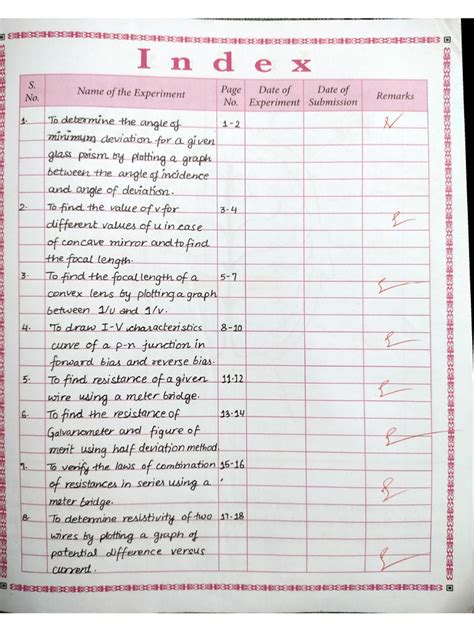 Index
S. No. Name of the Experiment Page No. Date of Experiment Date of Submission Remarks
1. To determine the angle of 1-2
minimum deviation for a given
glass prism by plotting a graph
between the angle of incidence
and angle of deviation.
2. To find the value of v for 3-4
different values of u in case
of concave mirror and to find
the focal length.
3. To find the focal length of a 5-7
convex lens by plotting a graph
between 1/u and 1/v.
4. To draw I-V characteristics 8-10
curve of a p-n junction in
forward bias and reverse bias.
5. To find resistance of a given 11-12
wire using a meter bridge.
6. To find the resistance of 13-14
Galvanometer and figure of
merit using half deviation method.
7. To verify the laws of combination 15-16
of resistances in series using a
meter bridge.
8. To determine resistivity of two 17-18
wires by plotting a graph of
potential difference versus
current.